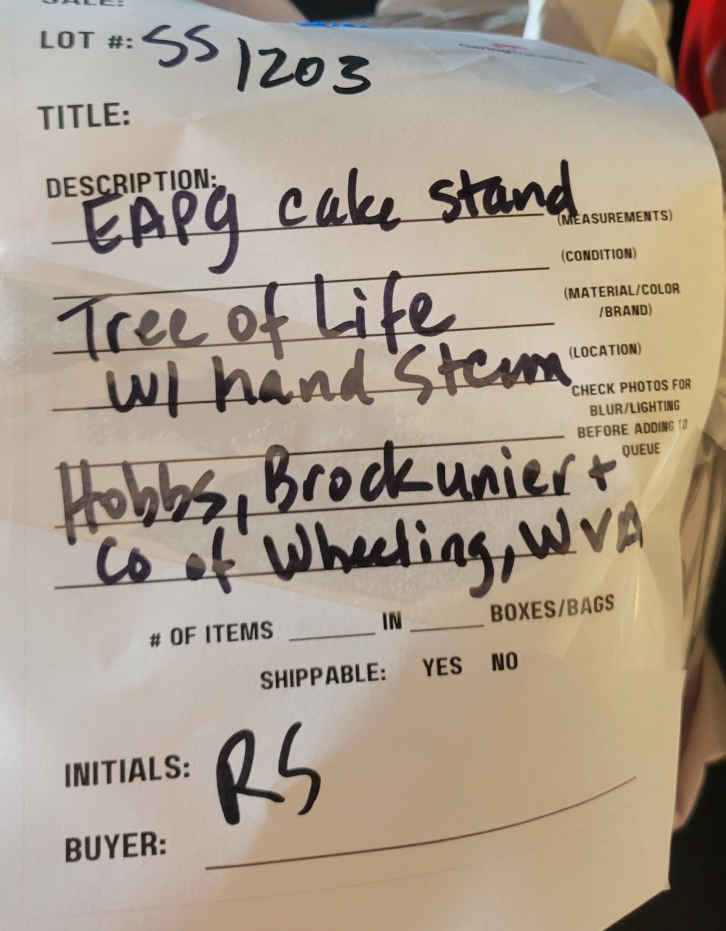 SALE:
LOT #: SS 1203
TITLE:
DESCRIPTION:
EAPG cake stand
(MEASUREMENTS)
(CONDITION)
Tree of Life
(MATERIAL/COLOR
/BRAND)
w/ hand Stem
(LOCATION)
CHECK PHOTOS FOR
BLUR/LIGHTING
BEFORE ADDING TO
QUEUE
Hobbs, Brockunier +
Co of Wheeling, WVA
# OF ITEMS ______ IN ______ BOXES/BAGS
SHIPPABLE: YES NO
INITIALS: RS
BUYER: